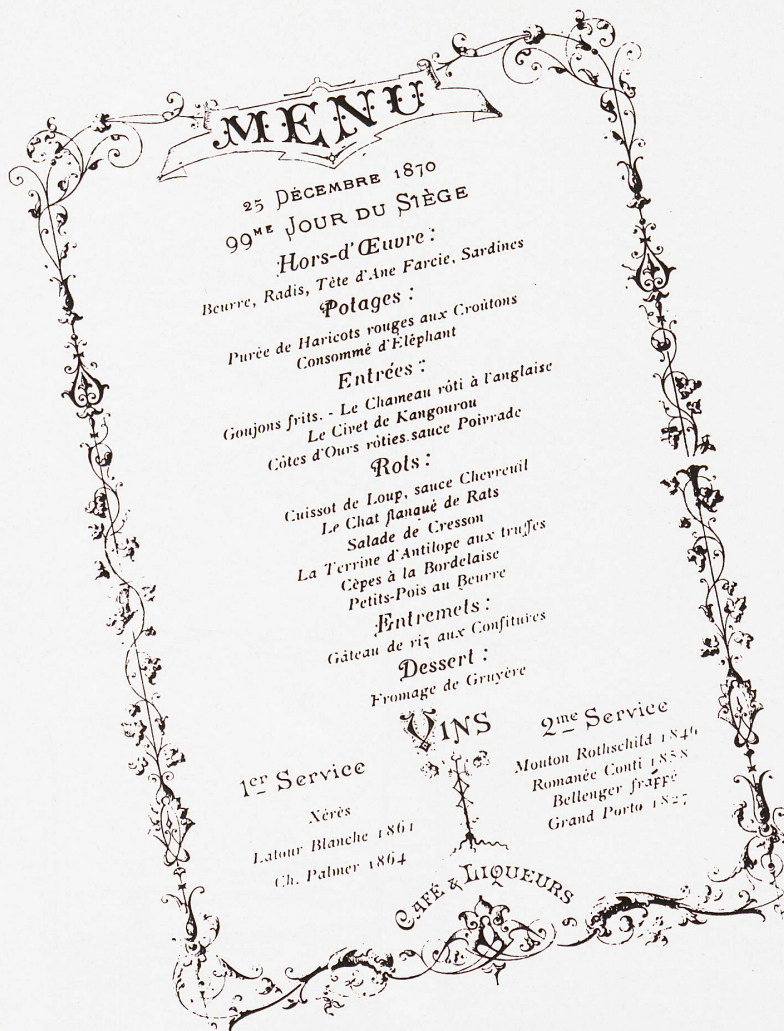 MENU
25 DÉCEMBRE 1870
99ME JOUR DU SIÈGE
Hors-d'Œuvre :
Beurre, Radis, Tête d'Ane Farcie, Sardines
Potages :
Purée de Haricots rouges aux Croûtons
Consommé d'Éléphant
Entrées :
Goujons frits. - Le Chameau rôti à l'anglaise
Le Civet de Kangourou
Côtes d'Ours rôties sauce Poivrade
Rots :
Cuissot de Loup, sauce Chevreuil
Le Chat flanqué de Rats
Salade de Cresson
La Terrine d'Antilope aux truffes
Cèpes à la Bordelaise
Petits-Pois au Beurre
Entremets :
Gâteau de riz aux Confitures
Dessert :
Fromage de Gruyère
VINS
1er Service
Xérès
Latour Blanche 1861
Ch. Palmer 1864
2me Service
Mouton Rothschild 1846
Romanée Conti 1858
Bellenger frappé
Grand Porto 1827
CAFÉ & LIQUEURS